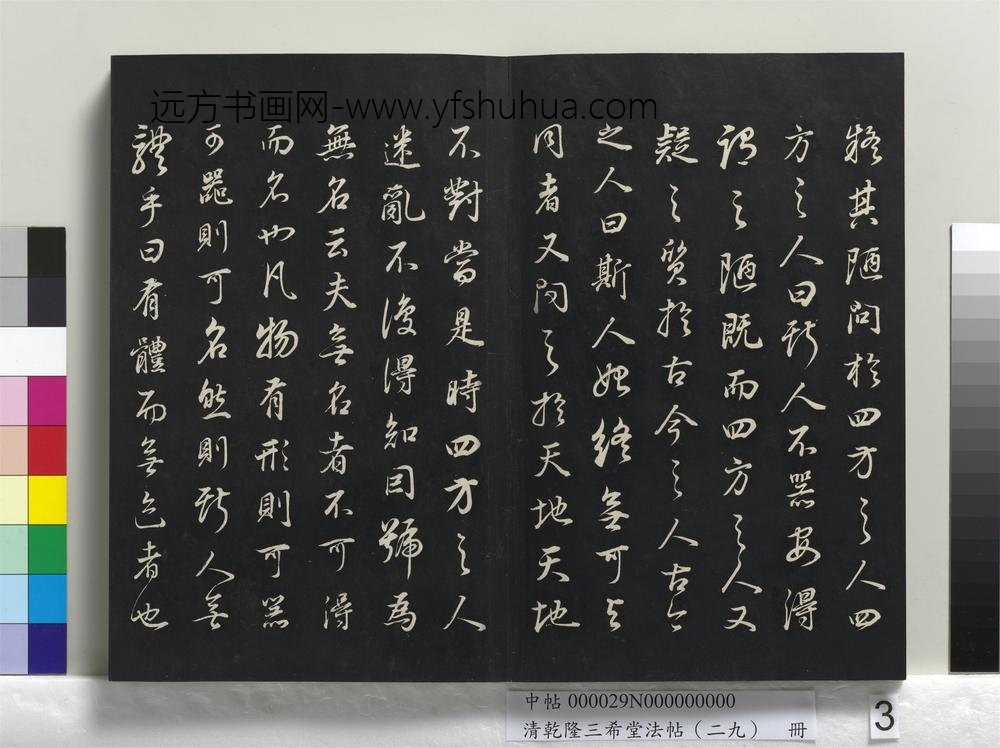 远方书画网-www.yfshuhua.com
疑其陋問於四方之人四
方之人曰斯人不器安得
謂之陋既而四方之人又
疑之質於古今之人古今
之人曰斯人始終無可与
同者又問之於天地天地
不對當是時四方之人
迷亂不復得知因號為
無名云夫無名者不可得
而名也凡物有形則可器
可器則可名然則斯人無
體乎曰有體而無迹者也
中帖 000029N000000000
清乾隆三希堂法帖（二九） 冊
3